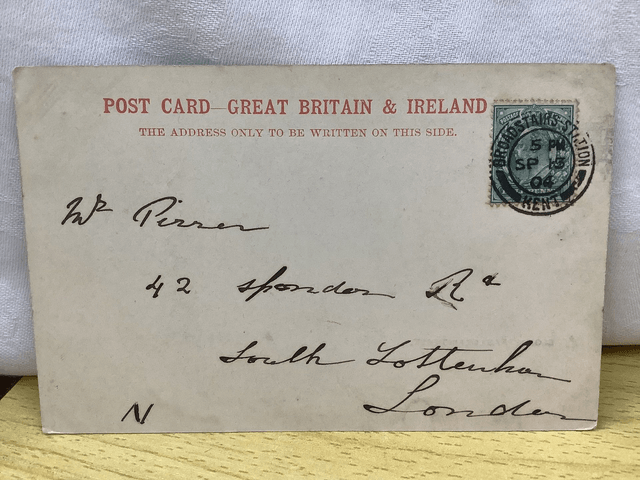 POST CARD—GREAT BRITAIN & IRELAND
THE ADDRESS ONLY TO BE WRITTEN ON THIS SIDE.
BROADSTAIRS STATION
5 PM
SP 15
04
KENT
Mr Pirrer
42 Spondon Rd
South Tottenham
London
N